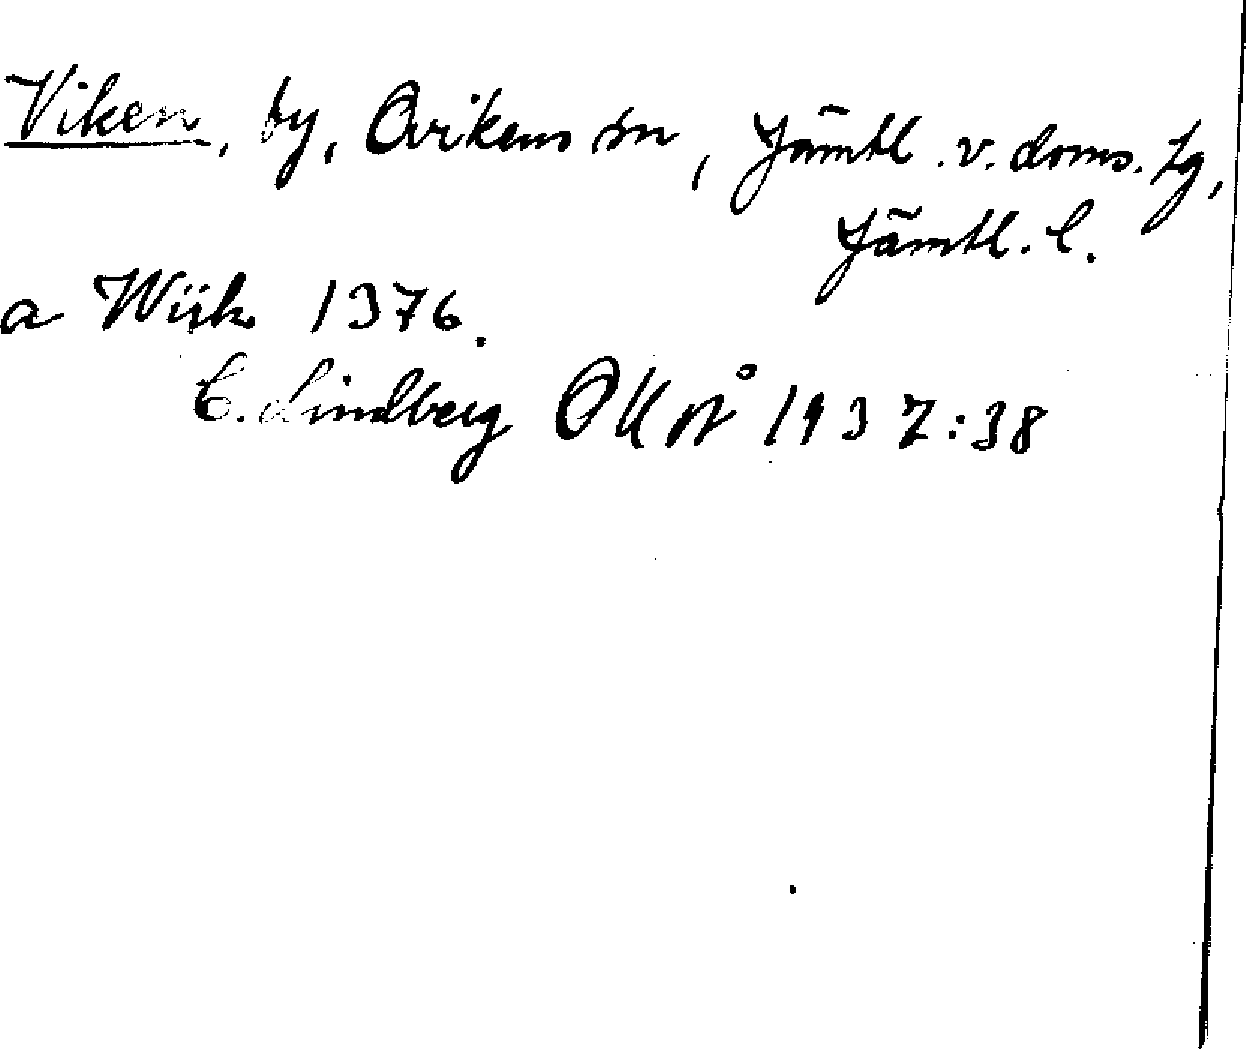 Viken, by, Ovikens sn, Jämtl. v. doms. tg,
Jämtl. l.
a Wiik 1376.
C. Lindberg OKvÅ 1937:38